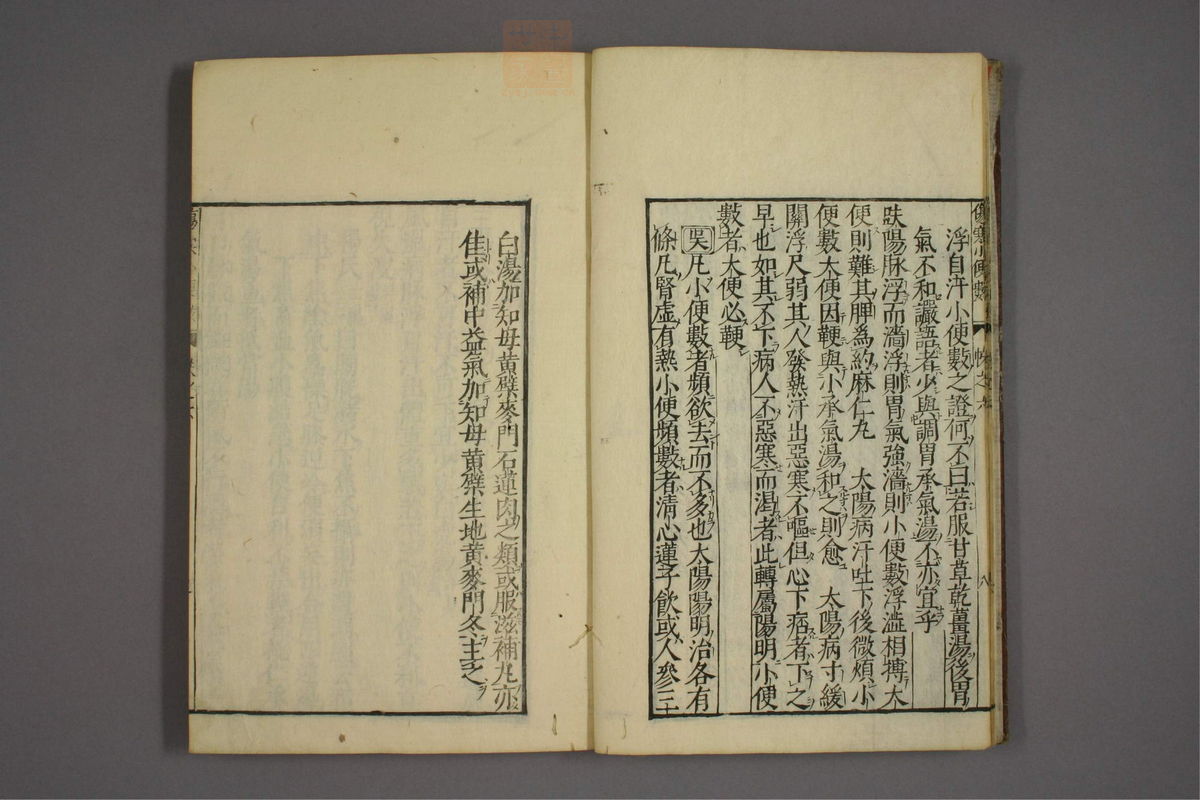 傷寒小便數 帙之六 八
浮自汗小便數之證何不曰若服甘草乾薑湯後胃
氣不和讝語者少與調胃承氣湯不亦宜乎
趺陽脉浮而濇浮則胃氣強濇則小便數浮濇相搏大
便則難其脾爲約麻仁丸 太陽病汗吐下後微煩小
便數大便因鞕與小承氣湯和之則愈 太陽病寸緩
關浮尺弱其人發熱汗出惡寒不嘔但心下痞者下之
早也如其不下病人不惡寒而渴者此轉屬陽明小便
數者大便必鞕
吳凡小便數者頻欲去而不多也太陽陽明治各有
條凡腎虛有熱小便頻數者清心蓮子飲或人參三
白湯加知母黃檗麥門石蓮肉之類或服滋補丸亦
佳或補中益氣加知母黃檗生地黃麥門冬主之